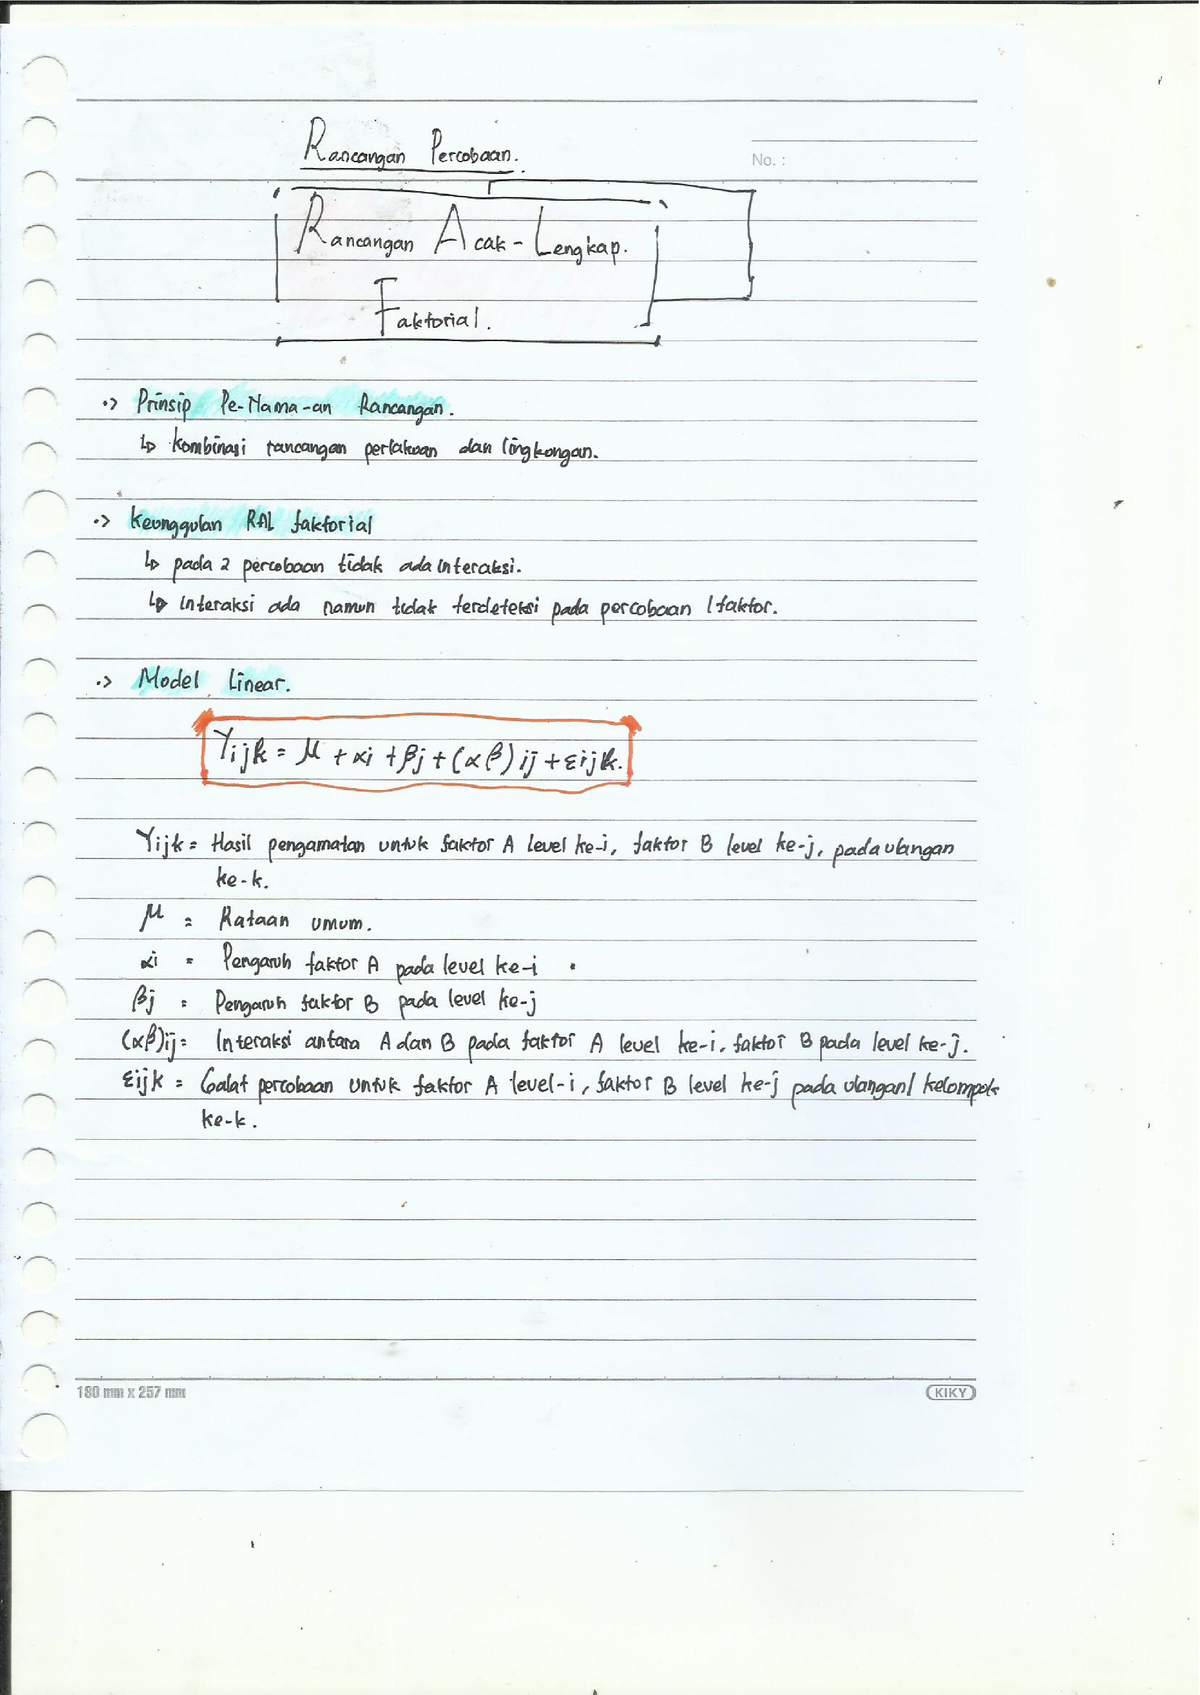 Rancangan Percobaan.
No. :
Rancangan Acak-Lengkap.
Faktorial.
.> Prinsip Pe-Nama-an Rancangan.
↳ Kombinasi rancangan perlakuan dan lingkongan.
.> Keunggulan RAL faktorial
↳ pada 2 percobaan tidak ada interaksi.
↳ Interaksi ada namun tidak terdeteksi pada percobaan 1 faktor.
.> Model Linear.
Yijk = μ + αi + βj + (αβ) ij + εijk.
Yijk = Hasil pengamatan untuk faktor A level ke-i, faktor B level ke-j, pada ulangan
ke-k.
μ = Rataan umum.
αi = Pengaruh faktor A pada level ke-i
βj = Pengaruh faktor B pada level ke-j
(αβ)ij = Interaksi antara A dan B pada faktor A level ke-i, faktor B pada level ke-j.
εijk = Galat percobaan untuk faktor A level-i, faktor B level ke-j pada ulangan/ kelompok
ke-k.
180 mm x 257 mm
KIKY